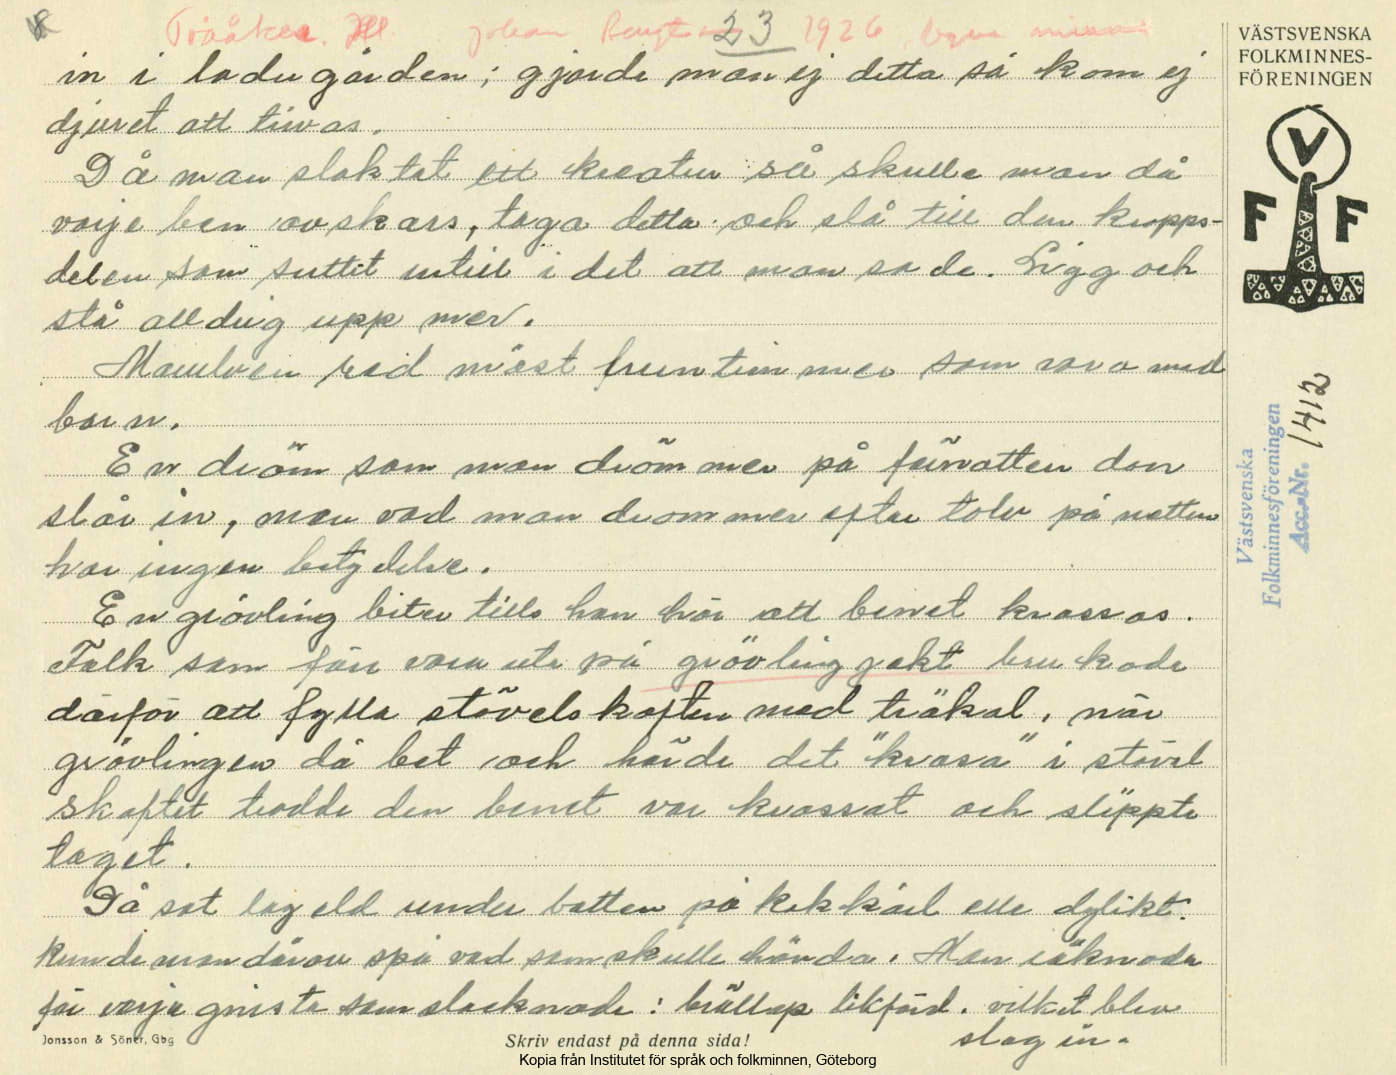 23 1926
VÄSTSVENSKA
FOLKMINNES-
FÖRENINGEN
V
F F
in i ladugården; gjorde man ej detta så kom ej
djuret att trivas.
Då man slaktat ett kreatur så skulle man då
varje ben avskars, taga detta och slå till den kropps-
delen som suttit intill i det att man sade. Ligg och
stå alldrig upp mer.
Maran red mäst fruntimmer som vara med
barn.
En dröm som man drömmer på förnatten den
slår in, men vad man drömmer efter tolv på natten
har ingen betydelse.
En grävling biter tills han hör att benet krassas.
Folk som förr voro ute på grävlingjakt brukade
därför att fylla stövelskaften med träkol, när
grävlingen då bet och hörde det "krasa" i stövel
skaftet trodde den benet var krassat och släppte
taget.
Då sot tog eld under botten på kokkärl elle dylikt.
kunde man därav spå vad som skulle hända. Man räknade
för varje gnista som slocknade: bröllop likfärd. vilket blev
slag in.
Västsvenska
Folkminnesföreningen
Acc.-Nr. 1412
Jonsson & Söner, Gbg
Skriv endast på denna sida!
Kopia från Institutet för språk och folkminnen, Göteborg